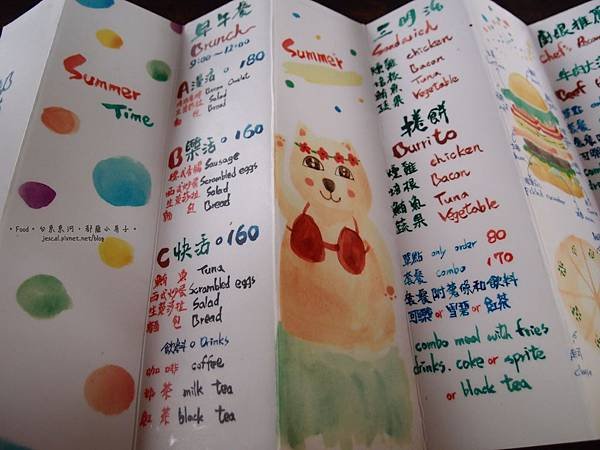 Summer
Time
• Food • 台東東河 • 
jescal.pixnet.net/blog
早午餐
Brunch
9:00~12:00
A 漫活 180
Bacon Omelet
Salad
Bread
B 樂活 160
德式香腸 Sausage
西式炒蛋 Scrambled eggs
生菜莎拉 Salad
麵包 Bread
C 快活 160
鮪魚 Tuna
西式炒蛋 Scrambled eggs
生菜莎拉 Salad
麵包 Bread
飲料 Drinks
咖啡 coffee
奶茶 milk tea
紅茶 black tea
Summer
三明治
Sandwich
燻雞 chicken
培根 Bacon
鮪魚 Tuna
蔬果 Vegetable
捲餅
Burrito
燻雞 chicken
培根 Bacon
鮪魚 Tuna
蔬果 Vegetable
單點 only order 80
套餐 combo 170
套餐附薯條和飲料
可樂 or 雪碧 or 紅茶
combo meal with fries
drinks. coke or sprite
or black tea
Chef's
Beef